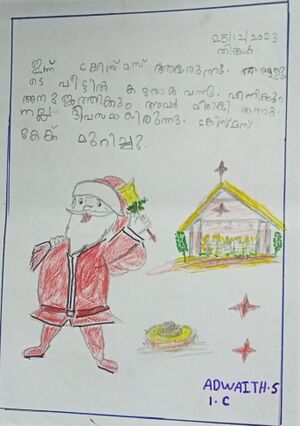 25/12/2023
തിങ്കൾ
ഇന്ന് ക്രിസ്മസ് ആയിരുന്നു.
ടെ വീട്ടിൽ കരോൾ വന്നു. എനിക്കും
അനുജത്തിക്കും അവർ മിഠായി തന്നു.
നല്ല ദിവസമായിരുന്നു. ക്രിസ്മസ്
കേക്ക് മുറിച്ചു.
ADWAITH.S
1.C